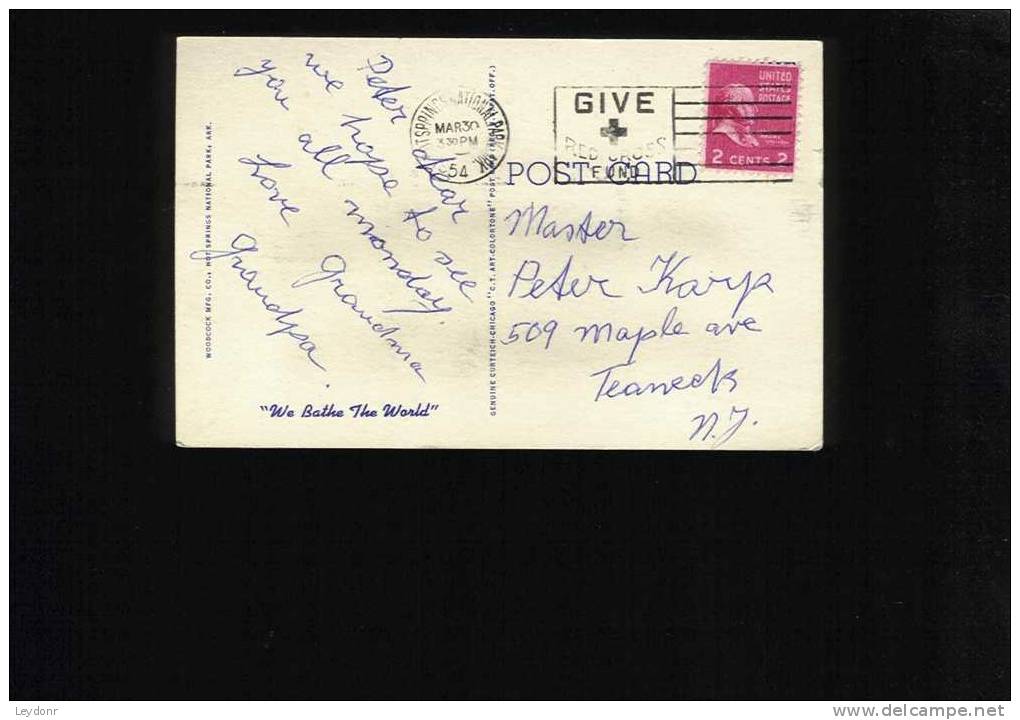 Peter dear
we hope to see
you all monday.
Love Grandma
Grandpa.
WOODCOCK MFG. CO., HOT SPRINGS NATIONAL PARK, ARK.
"We Bathe The World"
GENUINE CURTEICH-CHICAGO "C.T. ART-COLORTONE" POST
OFF.)
SPRINGS NATIONAL PARK
MAR 30
3 30 PM
54
GIVE
RED CROSS
FUND
UNITED
STATES
POSTAGE
2 CENTS 2
POST CARD
Master
Peter Karp
509 Maple ave
Teaneck
N.J.
Leydonr
www.delcampe.net